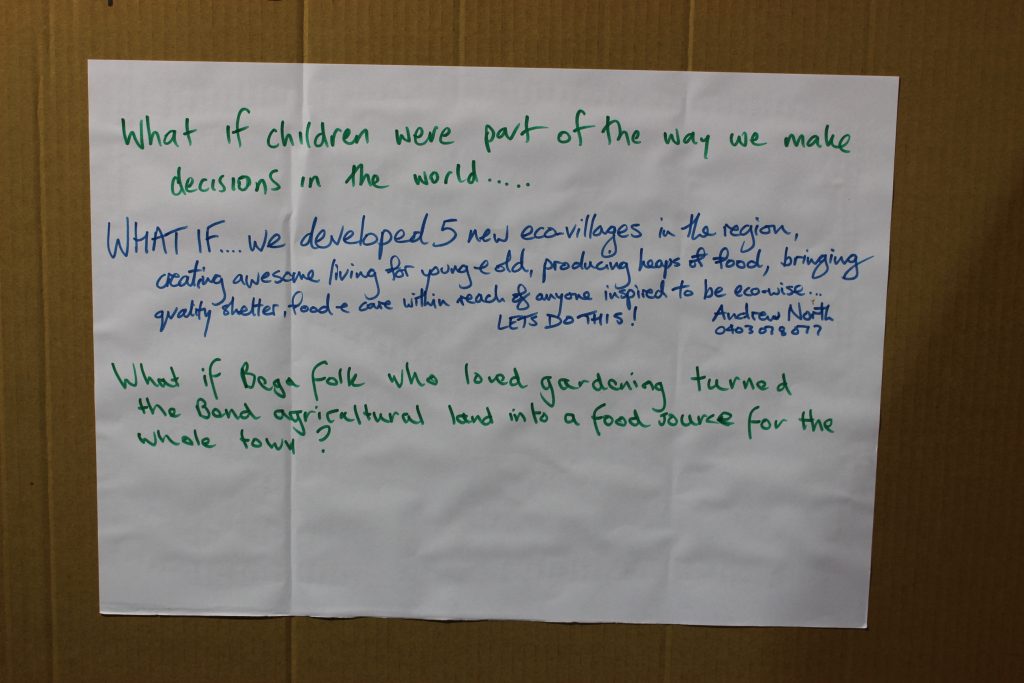 What if children were part of the way we make
decisions in the world.....
WHAT IF.... we developed 5 new eco-villages in the region,
creating awesome living for young & old, producing heaps of food, bringing
quality shelter, food & care within reach of anyone inspired to be eco-wise...
LETS DO THIS!
Andrew North
What if Bega folk who loved gardening turned
the Bond agricultural land into a food source for the
whole town?